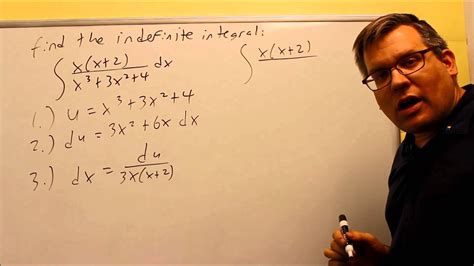 find the indefinite integral:
∫ x(x+2) / x³+3x²+4 dx
∫ x(x+2)
1.) u = x³+3x²+4
2.) du = 3x²+6x dx
3.) dx = du / 3x(x+2)